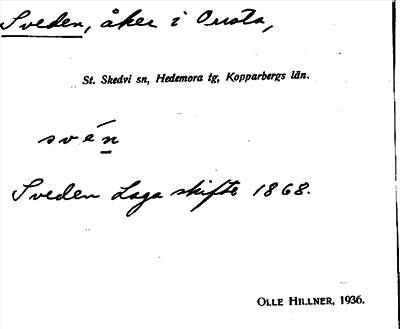 Sveden, åker i Onsta,
St. Skedvi sn, Hedemora tg, Kopparbergs län.
svén
Sveden Laga skifte 1868.
OLLE HILLNER, 1936.